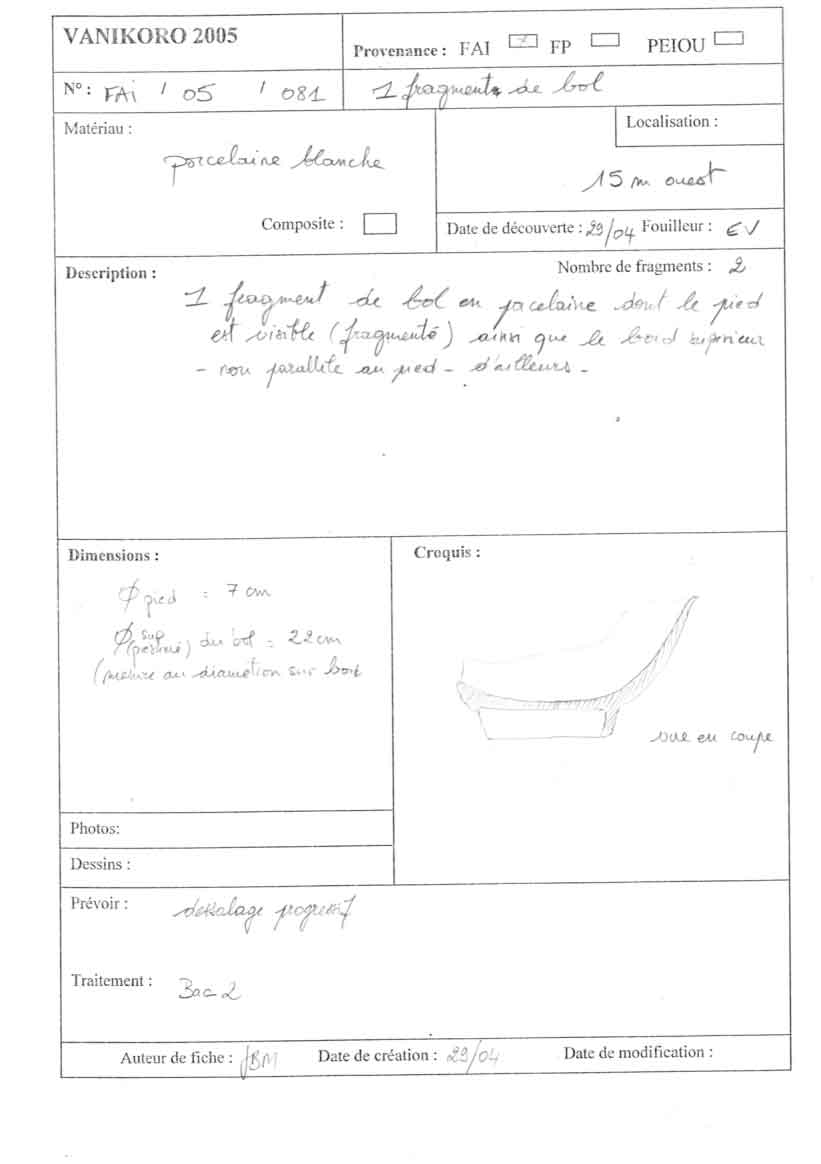 VANIKORO 2005
Provenance : FAI FP PEIOU
N° : FAi / 05 / 081
1 fragment de bol
Matériau :
porcelaine blanche
Composite :
Localisation :
15 m ouest
Date de découverte : 29/04 Fouilleur : EV
Description :
Nombre de fragments : 2
1 fragment de bol en pocelaine dont le pied
est visible (fragmenté) ainsi que le bord supérieur
- non parallèle au pied - d'ailleurs -
Dimensions :
Ø pied = 7 cm
Ø sup du bol = 22 cm
(mesure au diamétion sur bord
Croquis :
vue en coupe
Photos:
Dessins :
Prévoir :
dessalage progressif
Traitement :
Bac 2
Auteur de fiche : JBM Date de création : 29/04 Date de modification :